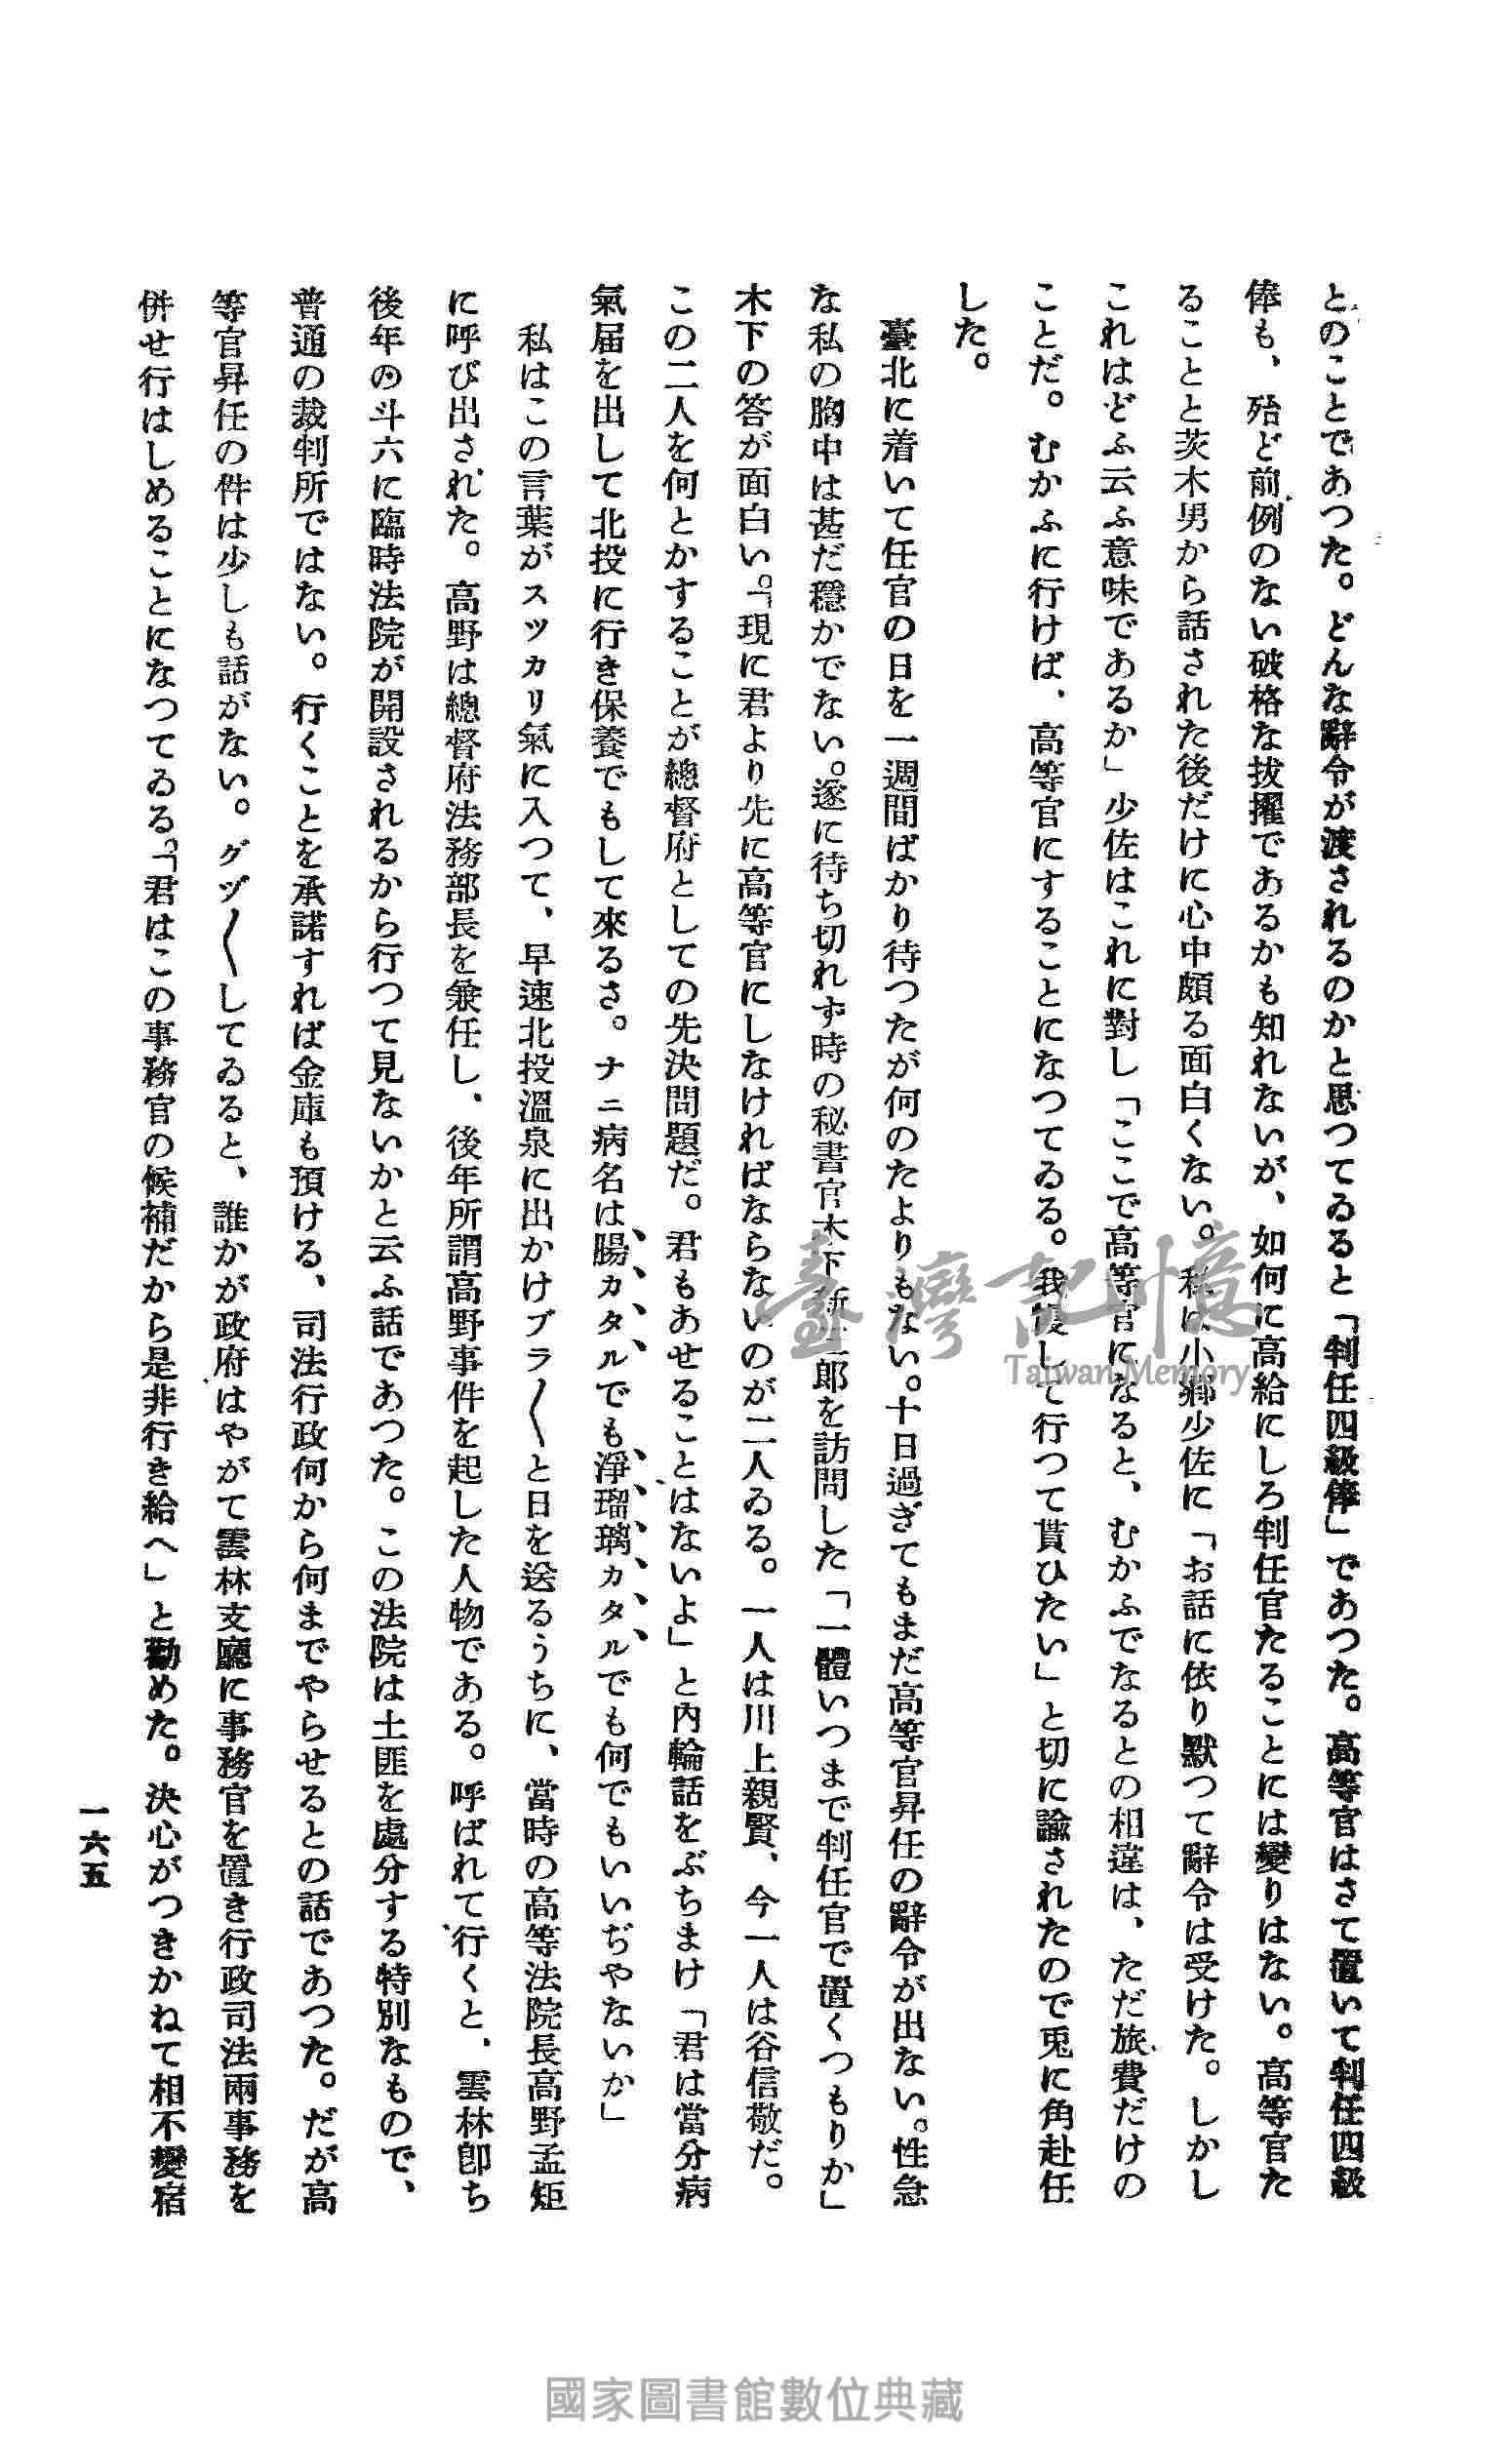 とのことであつた。どんな辭令が渡されるのかと思つてゐると「判任四級俸」であつた。高等官はさて置いて判任四級
俸も、殆ど前例のない破格な拔擢であるかも知れないが、如何に高給にしろ判任官たることには變りはない。高等官た
ることと茨木男から話された後だけに心中頗る面白くない。私は小鄕少佐に「お話に依り默つて辭令は受けた。しかし
これはどふ云ふ意味であるか」少佐はこれに對し「ここで高等官になると、むかふでなるとの相違は、ただ旅費だけの
ことだ。むかふに行けば、高等官にすることになつてゐる。我慢して行つて貰ひたい」と切に諭されたので兎に角赴任
した。
臺北に着いて任官の日を一週間ばかり待つたが何のたよりもない。十日過ぎてもまだ高等官昇任の辭令が出ない。性急
な私の胸中は甚だ穩かでない。遂に待ち切れず時の秘書官木下新三郎を訪問した「一體いつまで判任官で置くつもりか」
木下の答が面白い。「現に君より先に高等官にしなければならないのが二人ゐる。一人は川上親賢、今一人は谷信敬だ。
この二人を何とかすることが總督府としての先決問題だ。君もあせることはないよ」と內輪話をぶちまけ「君は當分病
氣届を出して北投に行き保養でもして來るさ。ナニ病名は腸カタルでも淨瑠璃カタルでも何でもいいぢやないか」
私はこの言葉がスツカリ氣に入つて、早速北投溫泉に出かけブラ〱と日を送るうちに、當時の高等法院長高野孟矩
に呼び出された。高野は總督府法務部長を兼任し、後年所謂高野事件を起した人物である。呼ばれて行くと、雲林卽ち
後年の斗六に臨時法院が開設されるから行つて見ないかと云ふ話であつた。この法院は土匪を處分する特別なもので、
普通の裁判所ではない。行くことを承諾すれば金庫も預ける、司法行政何から何までやらせるとの話であつた。だが高
等官昇任の件は少しも話がない。グヅ〱してゐると、誰かが政府はやがて雲林支廳に事務官を置き行政司法兩事務を
併せ行はしめることになつてゐる。「君はこの事務官の候補だから是非行き給へ」と勸めた。決心がつきかねて相不變宿
一六五
臺灣記憶
Taiwan Memory
國家圖書館數位典藏